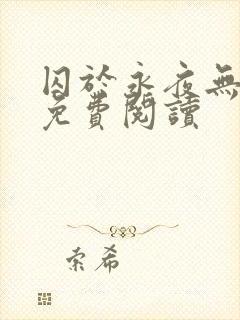 囚於永夜無
免費閱讀
索希